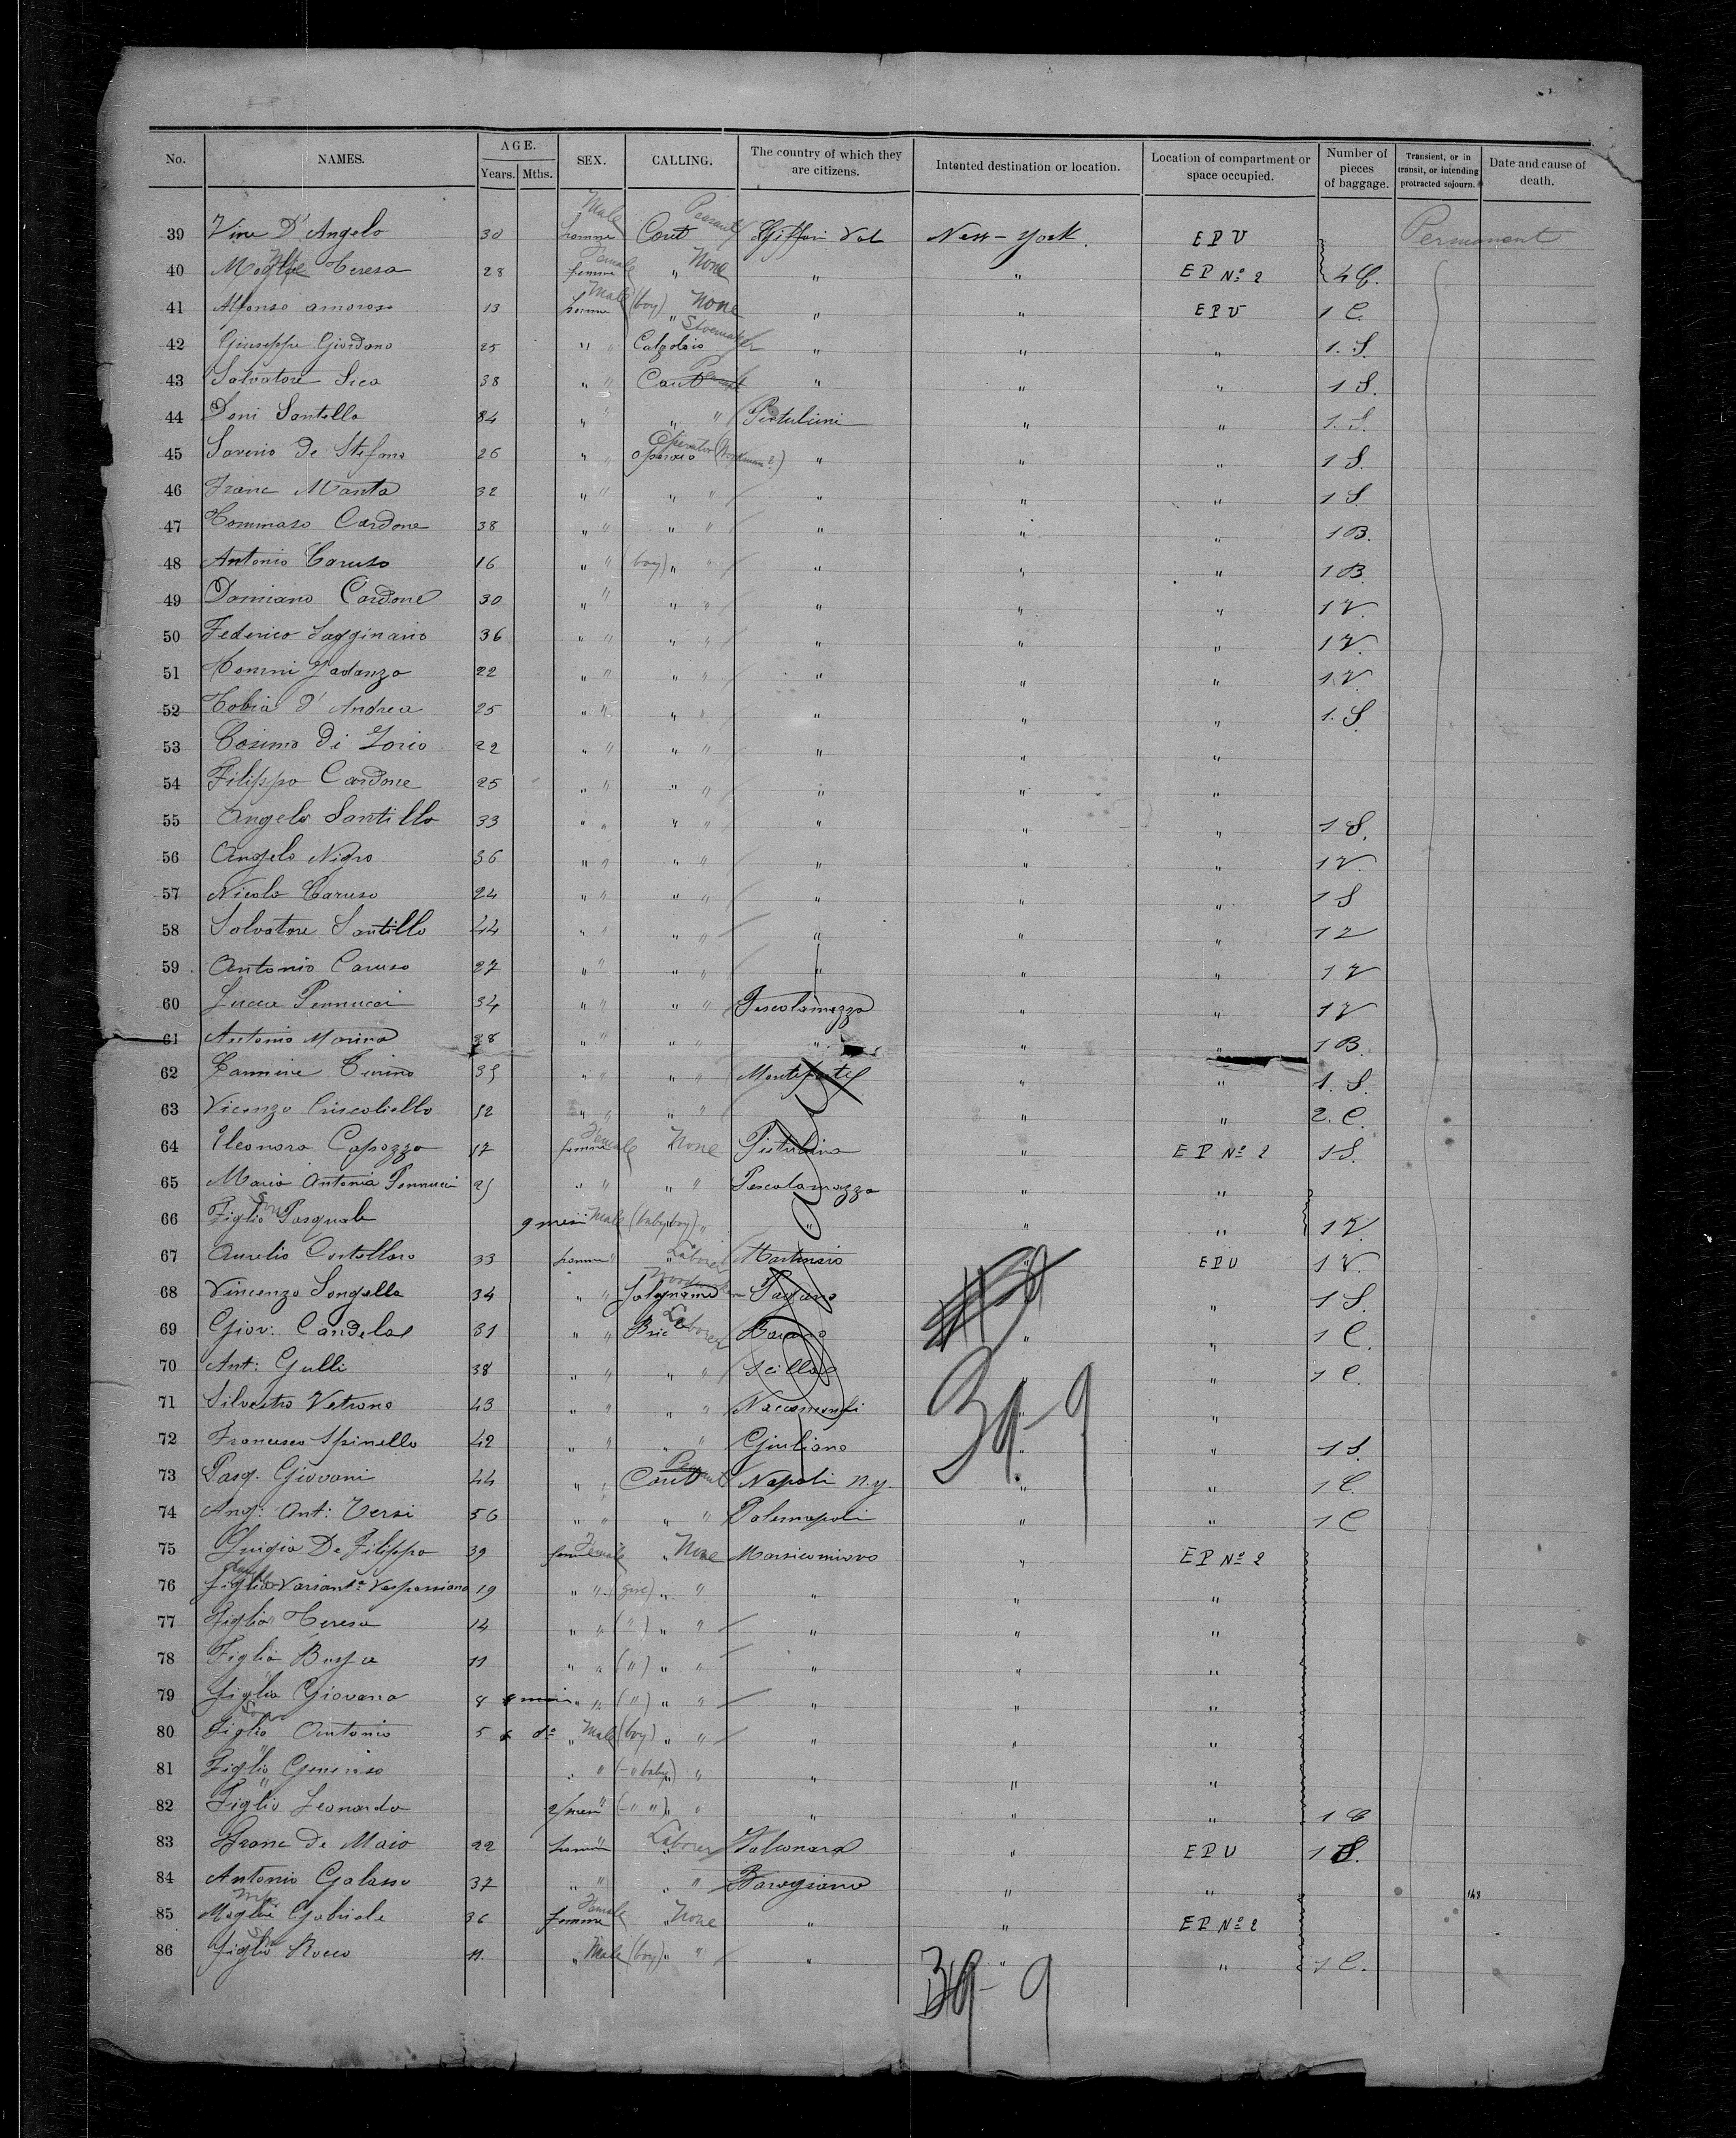 No. NAMES. AGE. Years. Mths. SEX. CALLING. The country of which they are citizens. Intented destination or location. Location of compartment or space occupied. Number of pieces of baggage. Transient, or in transit, or intending protracted sojourn. Date and cause of death.
39 Vinc D'Angelo 30 homme Male Cont Peasant Giffoni Val New-York. E P V Permanent
40 Moglie Wife Teresa 28 femme Female " None " " E P No 2 4 C.
41 Alfonso amoroso 13 homme Male (boy) " None " " E P V 1 C.
42 Giuseppe Giordano 25 " " Calzolaio Shoemaker " " " 1. S.
43 Salvatore Sica 38 " " Cont Peasant " " " 1 S.
44 Doni Santillo 34 " " " " Pietulcini " " 1. S.
45 Saverio de Stefano 26 " " operaio Operator (Workman?) " " " 1 S.
46 Franc Manta 32 " " " " " " " 1 S
47 Tommaso Cardone 38 " " " " " " " 1 B.
48 Antonio Caruso 16 " " (boy) " " " " " 1 B.
49 Damiano Cardone 30 " " " " " " " 1 V.
50 Federico Sagginario 36 " " " " " " " 1 V.
51 Tomini 22 " " " " " " " 1 V.
52 Tobia d'Andrea 25 " " " " " " " 1. S.
53 Cosimo di Iorio 22 " " " " " " "
54 Filippo Cardone 25 " " " " " " "
55 Angelo Santillo 33 " " " " " " " 1 S.
56 Angelo Nigro 36 " " " " " " " 1 V.
57 Nicola Caruso 24 " " " " " " " 1 S
58 Salvatore Santillo 44 " " " " " " " 1 V
59 Antonio Caruso 27 " " " " " " " 1 V
60 Lucca Pennucci 34 " " " " Pescolamazza " " 1 V
61 Antonio Marino 28 " " " " " " " 1 B.
62 Carmine Turino 35 " " " " Monteforte " " 1. S.
63 Vicenzo Criscoliello 52 " " " " " " 2. C.
64 Eleonora Capozzo 17 femme Female None Pietulcina " E P No 2 1 S.
65 Maria Antonia Pennucci 25 " " " " Pescolamazza " "
66 Figlio Son Pasquale 9 mesi Male (baby boy) " " " " 1 V.
67 Aurelio Costollaro 33 homme " " Laborer Martinsio " E P V 1 V.
68 Vincenzo Songella 34 " " falegname Pagano " " 1 S.
69 Giov: Candela 31 " " Bric Laborer Barano " " 1 C.
70 Ant: Gulli 38 " " " " Scilla " " 1 C.
71 Silvestro Vetrano 43 " " " " " "
72 Francesco Spinello 42 " " " " Giuliano " " 1 S.
73 Pasq. Giovani 44 " " Cont Peasant Napoli N.y. " " 1 C.
74 Ang: Ant: Versi 56 " " " " Palemapoli " " 1 C
75 Luigia De Filippo 39 femme Female " None Marsiconuovo " E P No 2
76 figlia Variant: Vespassiana 19 " " (girl) " " " " "
77 figlia Teresa 14 " " ( " ) " " " " "
78 Figlia 11 " " ( " ) " " " " "
79 figlia Giovana 8 " " ( " ) " " " " "
80 Figlio Son Antonio 5 do " Male (boy) " " " " "
81 Figlio " Generoso " " (- " baby) " " " "
82 Figlio " Leonardo 2/mesi " (- " " ) " " " " " 1 C
83 Franc de Maio 22 homme " " Laborer Valconara " E P V 1 S.
84 Antonio Galasso 37 " " " " Baragiano " "
85 Moglie Wife Gabriele 36 femme Female " None " " E P No 2
86 figlio Son Rocco 11. " Male (boy) " " " " " 1 C.
39-9
39-9